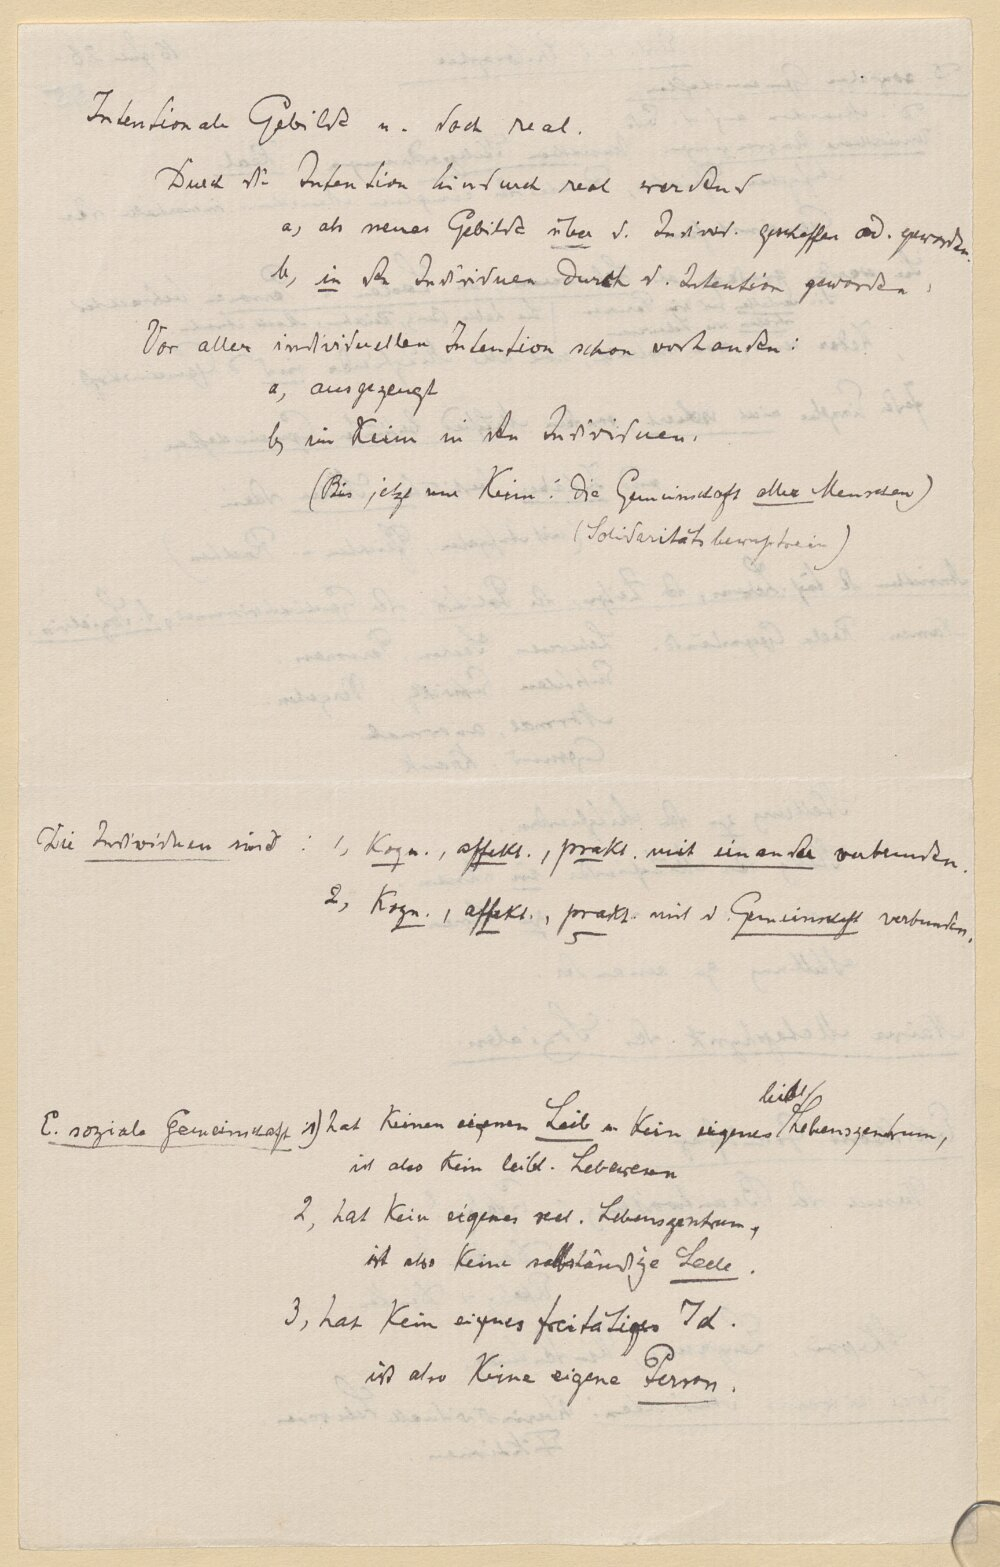 Intentionale Gebilde u. doch real.
Durch die Intention hindurch real werdend
a, als neues Gebilde über d. Individ. geschaffen od. geworden.
b, in den Individuen durch d. Intention geworden.
Vor aller individuellen Intention schon vorhanden:
a, ausgezeugt
b, im Keim in den Individuen.
(Bis jetzt nur Keim: die Gemeinschaft aller Menschen)
(Solidaritätsbewußtsein)
Die Individuen sind: 1, Kogn., affekt., prakt. mit einander verbunden.
2, Kogn., affekt., prakt. mit d. Gemeinschaft verbunden.
E. soziale Gemeinschaft 1) hat keinen eigenen Leib u. kein eigenes leibl. Lebenszentrum,
ist also kein leibl. Lebewesen
2, hat kein eigenes seel. Lebenszentrum,
ist also keine selbständige Seele.
3, hat kein eigenes freitätiges Ich.
ist also keine eigene Person.